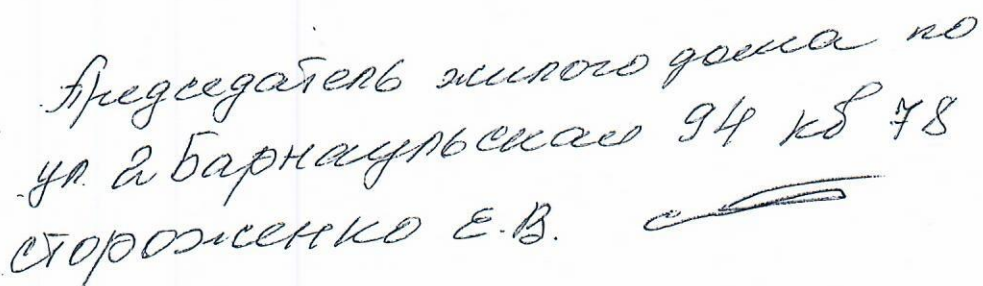 Председатель жилого дома по
ул. 2 Барнаульская 94 кв 78
стороженко Е.В.